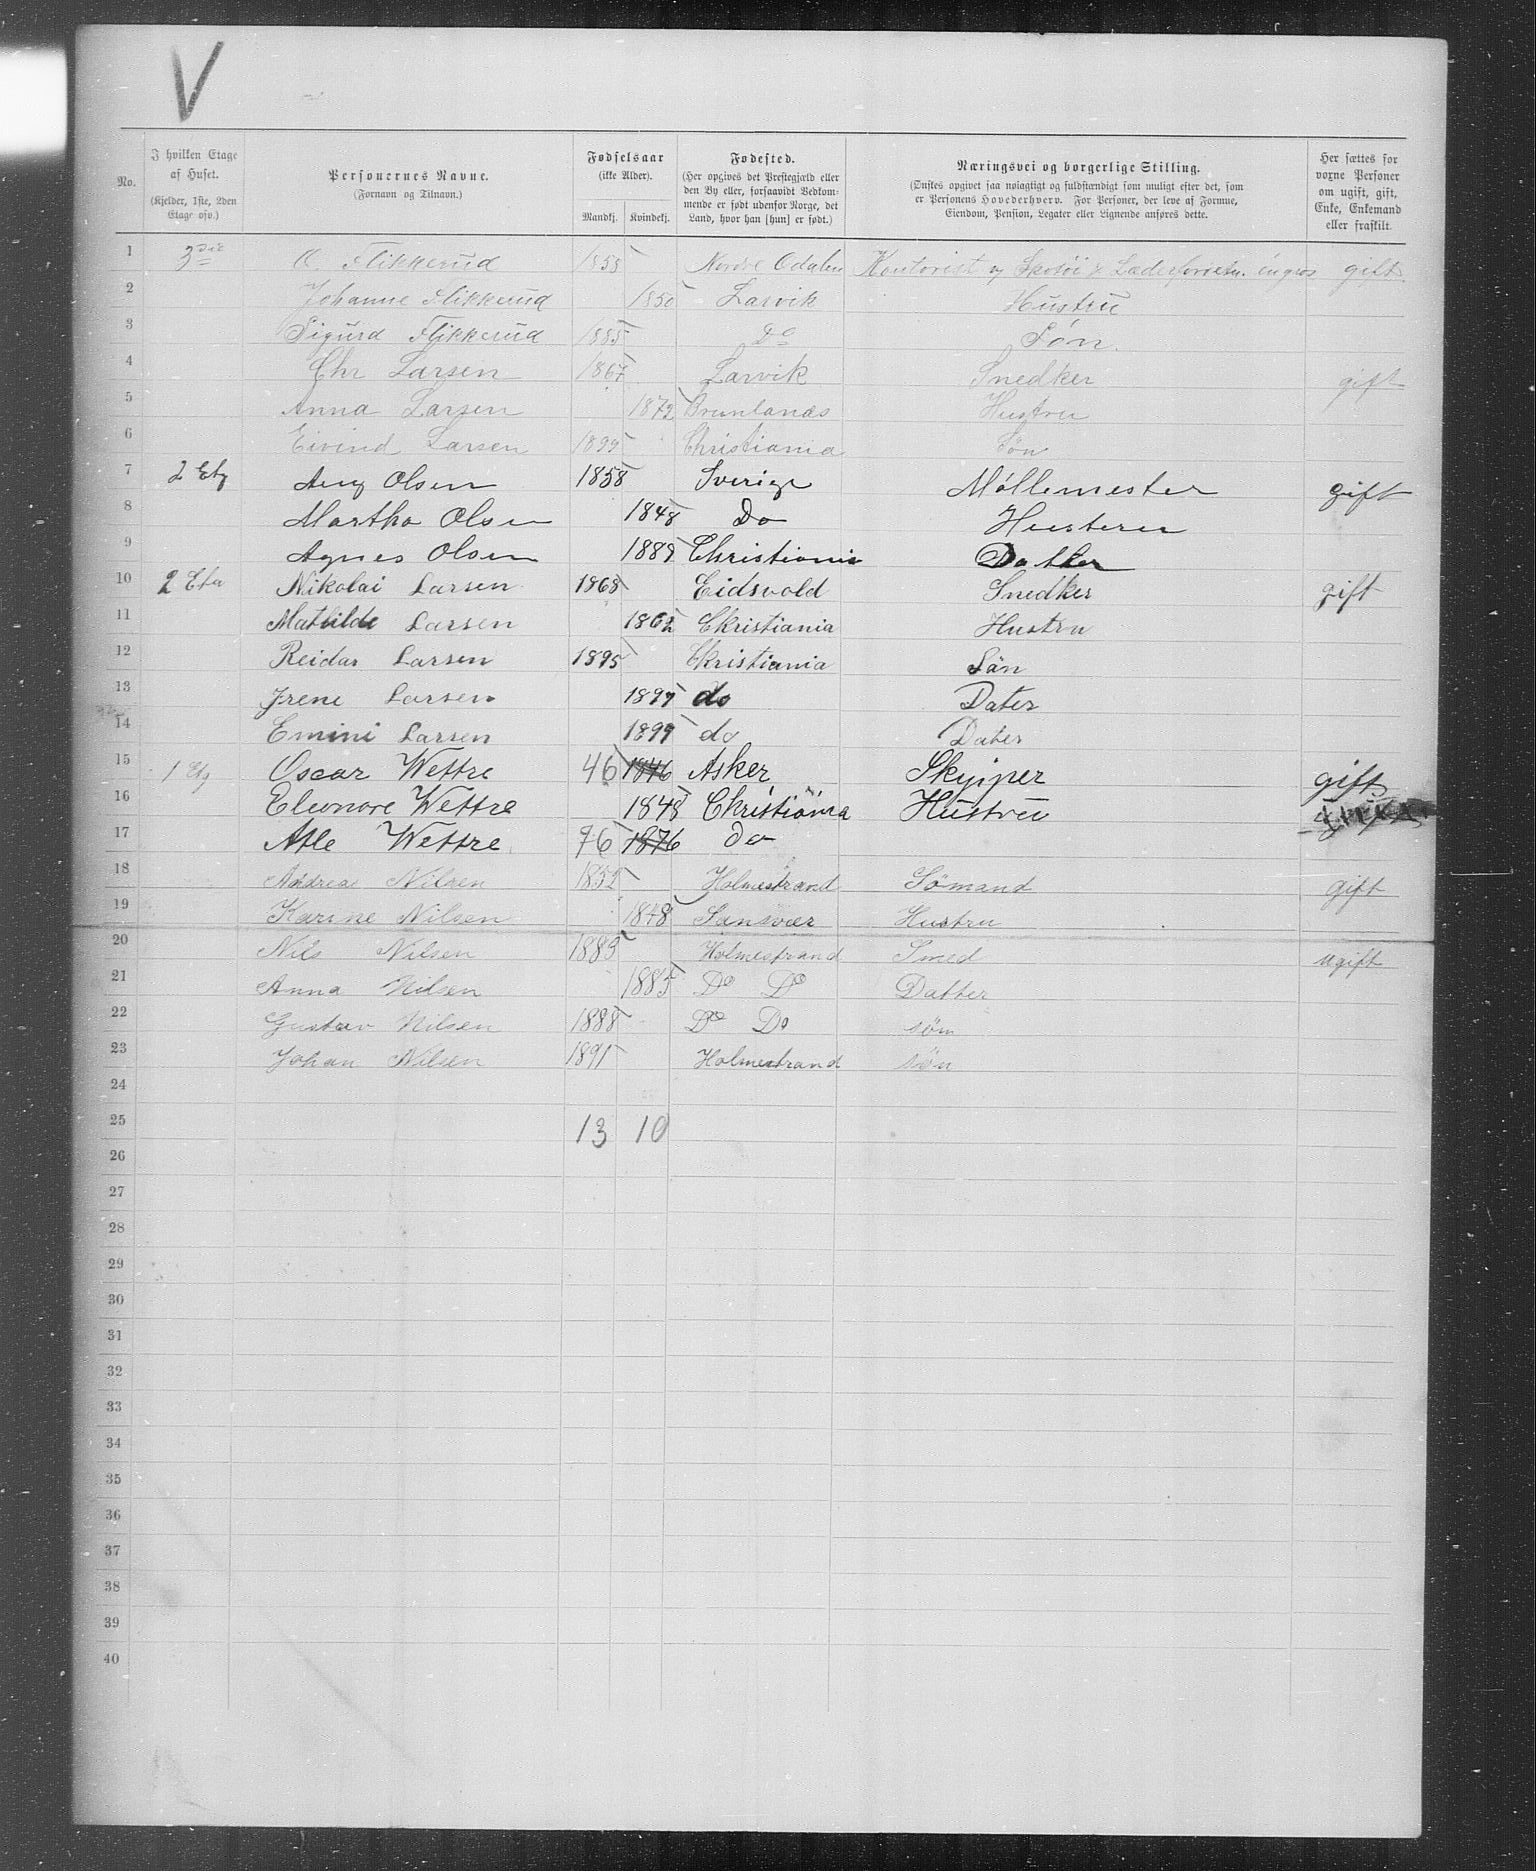 V
No. | I hvilken Etage af Huset. (Kjelder, 1ste, 2den Etage osv.) | Personernes Navne. (Fornavn og Tilnavn.) | Fødselsaar (ikke Alder). Mandkj. | Kvindekj. | Fødested. (Her opgives det Prestegjæld eller den By eller, forsaavidt Vedkommende er født udenfor Norge, det Land, hvor han [hun] er født.) | Næringsvei og borgerlige Stilling. (Ønskes opgivet saa nøiagtigt og fuldstændigt som muligt efter det, som er Personens Hovederhverv. For Personer, der leve af Formue, Eiendom, Pension, Legater eller Lignende anføres dette.) | Her sættes for voxne Personer om ugift, gift, Enke, Enkemand eller fraskilt.
1 3die O. Flikkerud 1855 Nordre Odalen Kontorist og Skotöi & Læderforretn. engros gift
2 Johanne Flikkerud 1850 Larvik Hustru
3 Sigurd Flikkerud 1885 Do Søn.
4 Chr Larsen 1867 Larvik Snedker gift
5 Anna Larsen 1872 Brunlanæs Hustru
6 Eivind Larsen 1899 Christiania Søn
7 2 Etg Aug Olsen 1858 Sverige Møllemester gift
8 Martha Olsen 1848 Do Husteru
9 Agnes Olsen 1889 Christiania Datter
10 2 Eta Nikolai Larsen 1868 Eidsvold Snedker gift
11 Mathilde Larsen 1862 Christiania Hustru
12 Reidar Larsen 1895 Christiania Sän
13 Irene Larsen 1897 do Dater
14 Emini Larsen 1899 do Dater
15 1 Etg Oscar Wettre 46 1846 Asker Skyiper gift
16 Eleonore Wettre 1848 Christiania Hustru
17 Atle Wettre 76 1876 do
18 Andrea Nilsen 1852 Holmestrand Sömand gift
19 Karine Nilsen 1848 Sansvær Hustru
20 Nils Nilsen 1883 Holmestrand Smed ugift
21 Anna Nilsen 1885 Do Do Datter
22 Gustav Nilsen 1888 Do Do søn
23 Johan Nilsen 1891 Holmestrand søn
24
25 13 10
26
27
28
29
30
31
32
33
34
35
36
37
38
39
40